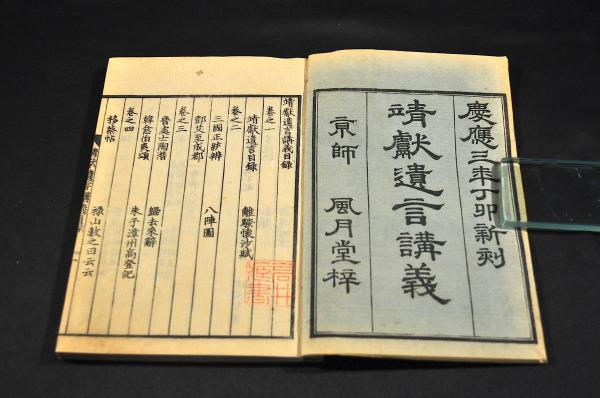 慶應三年丁卯新刻
靖獻遺言講義
京師 風月堂梓
靖獻遺言講義目錄
卷之一
靖獻遺言目錄 離騷懷沙賦
卷之二
三國正統辨 八陣圖
鄧艾至成都
卷之三
晉處士陶潛 歸去來辭
韓愈伯夷頌 朱子漳州高登記
卷之四
移蔡帖 祿山數之曰云云